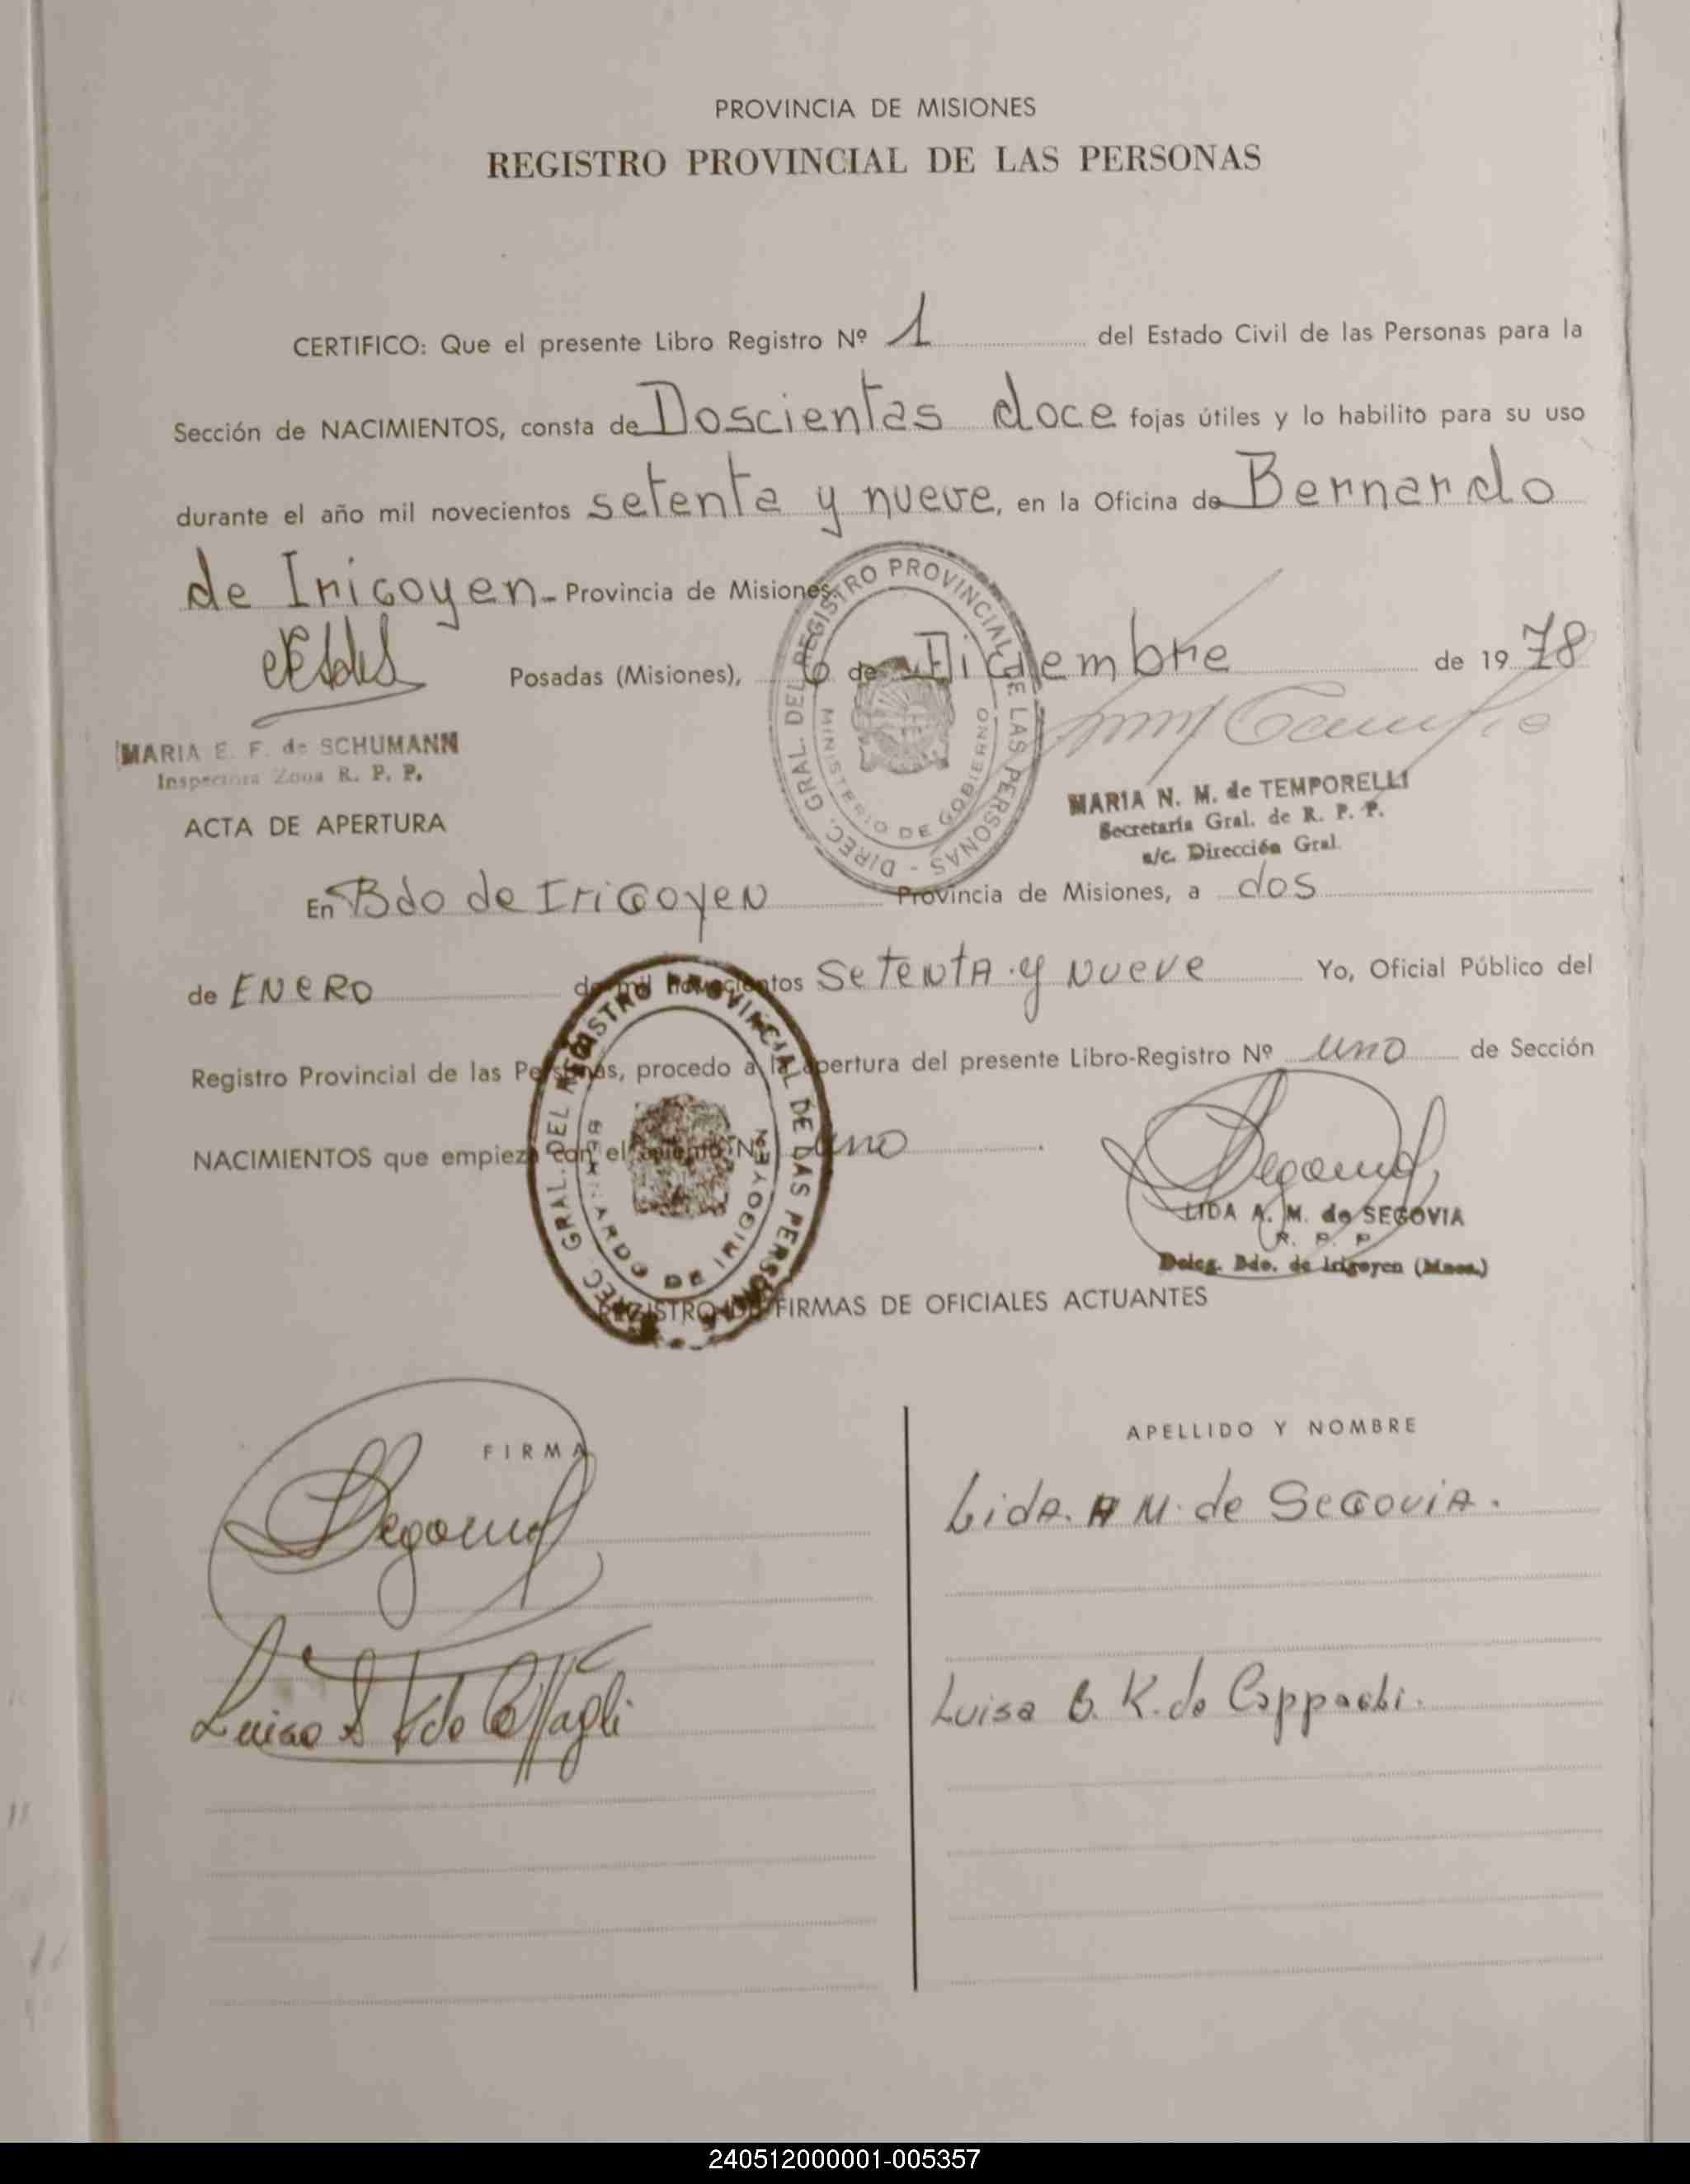 PROVINCIA DE MISIONES
REGISTRO PROVINCIAL DE LAS PERSONAS
CERTIFICO: Que el presente Libro Registro Nº 1 del Estado Civil de las Personas para la
Sección de NACIMIENTOS, consta de Doscientas doce fojas útiles y lo habilito para su uso
durante el año mil novecientos setenta y nueve, en la Oficina de Bernardo
de Irigoyen- Provincia de Misiones.
Posadas (Misiones), 6 de Diciembre de 1978
DIREC. GRAL. DEL REGISTRO PROVINCIAL DE LAS PERSONAS -
MINISTERIO DE GOBIERNO
MARIA E. F. de SCHUMANN
Inspectora Zona R. P. P.
MARIA N. M. de TEMPORELLI
Secretaria Gral. de R. P. P.
a/c. Dirección Gral.
ACTA DE APERTURA
En Bdo de Irigoyen Provincia de Misiones, a dos
de ENERO de mil novecientos SeTentA y Nueve Yo, Oficial Público del
Registro Provincial de las Personas, procedo a la apertura del presente Libro-Registro Nº uno de Sección
NACIMIENTOS que empieza con el asiento Nº uno
DIREC. GRAL. DEL REGISTRO PROVINCIAL DE LAS PERSONAS
BERNARDO DE IRIGOYEN
Segovia
LIDA A. M. de SEGOVIA
R. P. P.
Deleg. Bdo. de Irigoyen (Mnes.)
REGISTRO DE FIRMAS DE OFICIALES ACTUANTES
FIRMA
APELLIDO Y NOMBRE
Segovia
Lida. A M. de Segovia.
Luisa
Luisa G. K. de
240512000001-005357